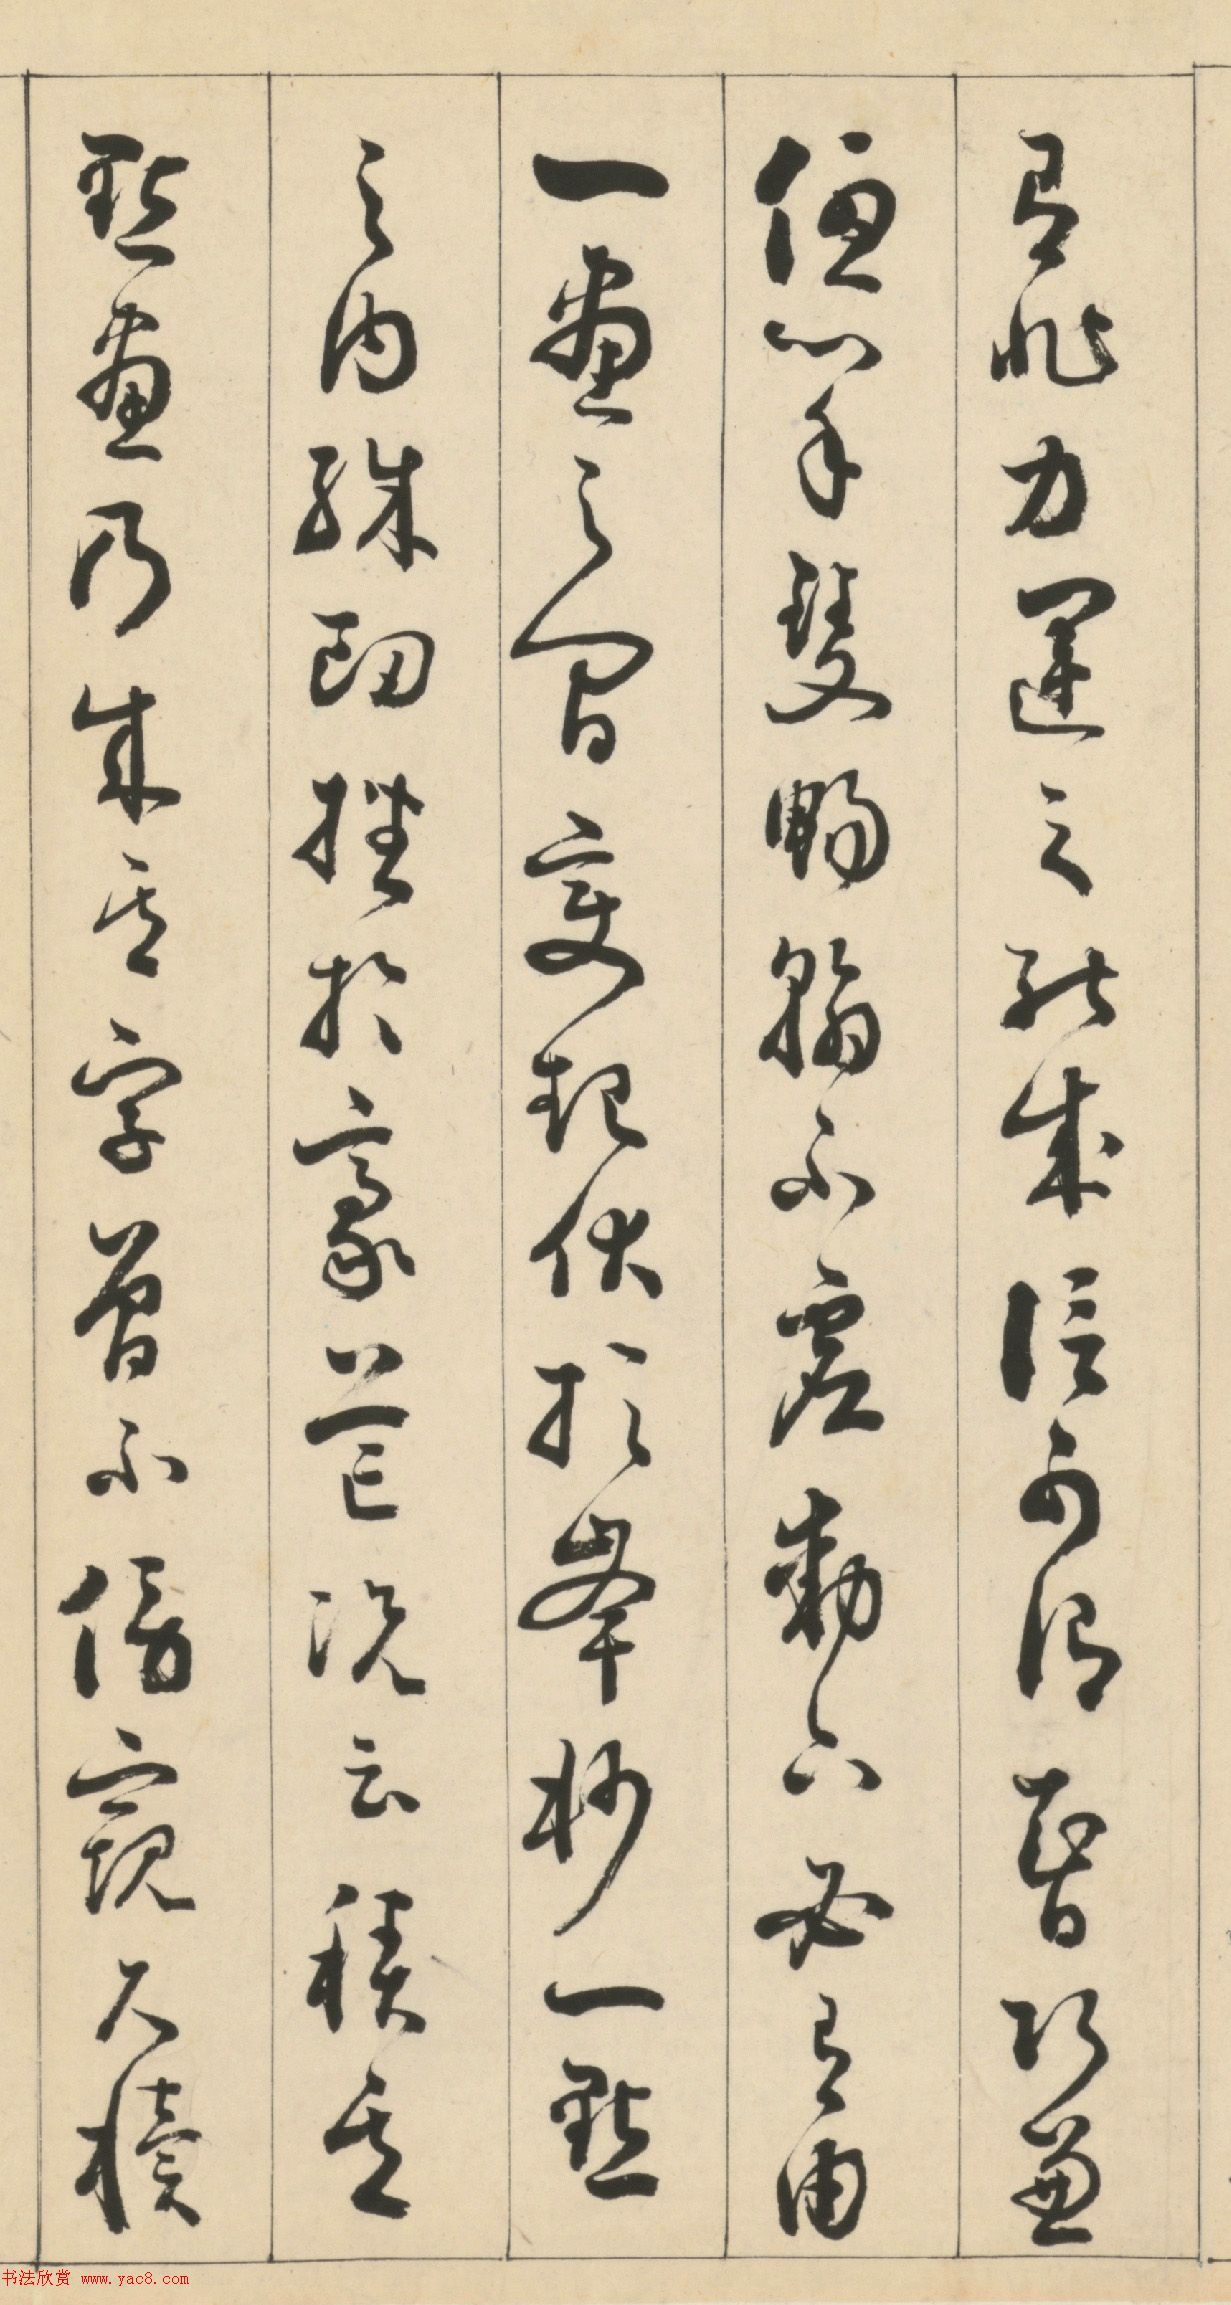 有非力運之能成信可謂智巧兼
優心手雙暢翰不虛動下必有由
一畫之間變起伏於峯杪一點
之内殊衂挫於豪芒況云積其
點畫乃成其字曾不傍窺尺牘
书法欣赏 www.yac8.com